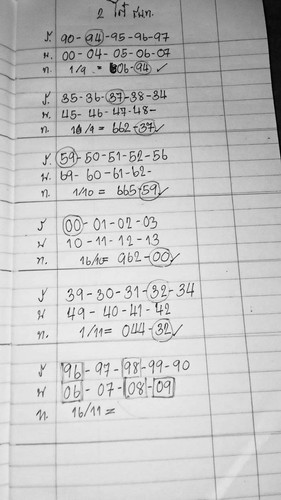 2 ใต้ ชน.
ร. 90-94-95-96-97
น. 00-04-05-06-07
ก. 1/9 = 606-94 ✓
ร. 35-36-37-38-34
น. 45-46-47-48-
ก. 16/9 = 662-37 ✓
ร. 59-50-51-52-56
น. 69-60-61-62-
ก. 1/10 = 665-59 ✓
ร 00-01-02-03
น 10-11-12-13
ก. 16/10 = 962-00 ✓
ร 39-30-31-32-34
น 49-40-41-42
ก. 1/11 = 044-32 ✓
ร 96-97-98-99-90
น 06-07-08-09
ก. 16/11 =